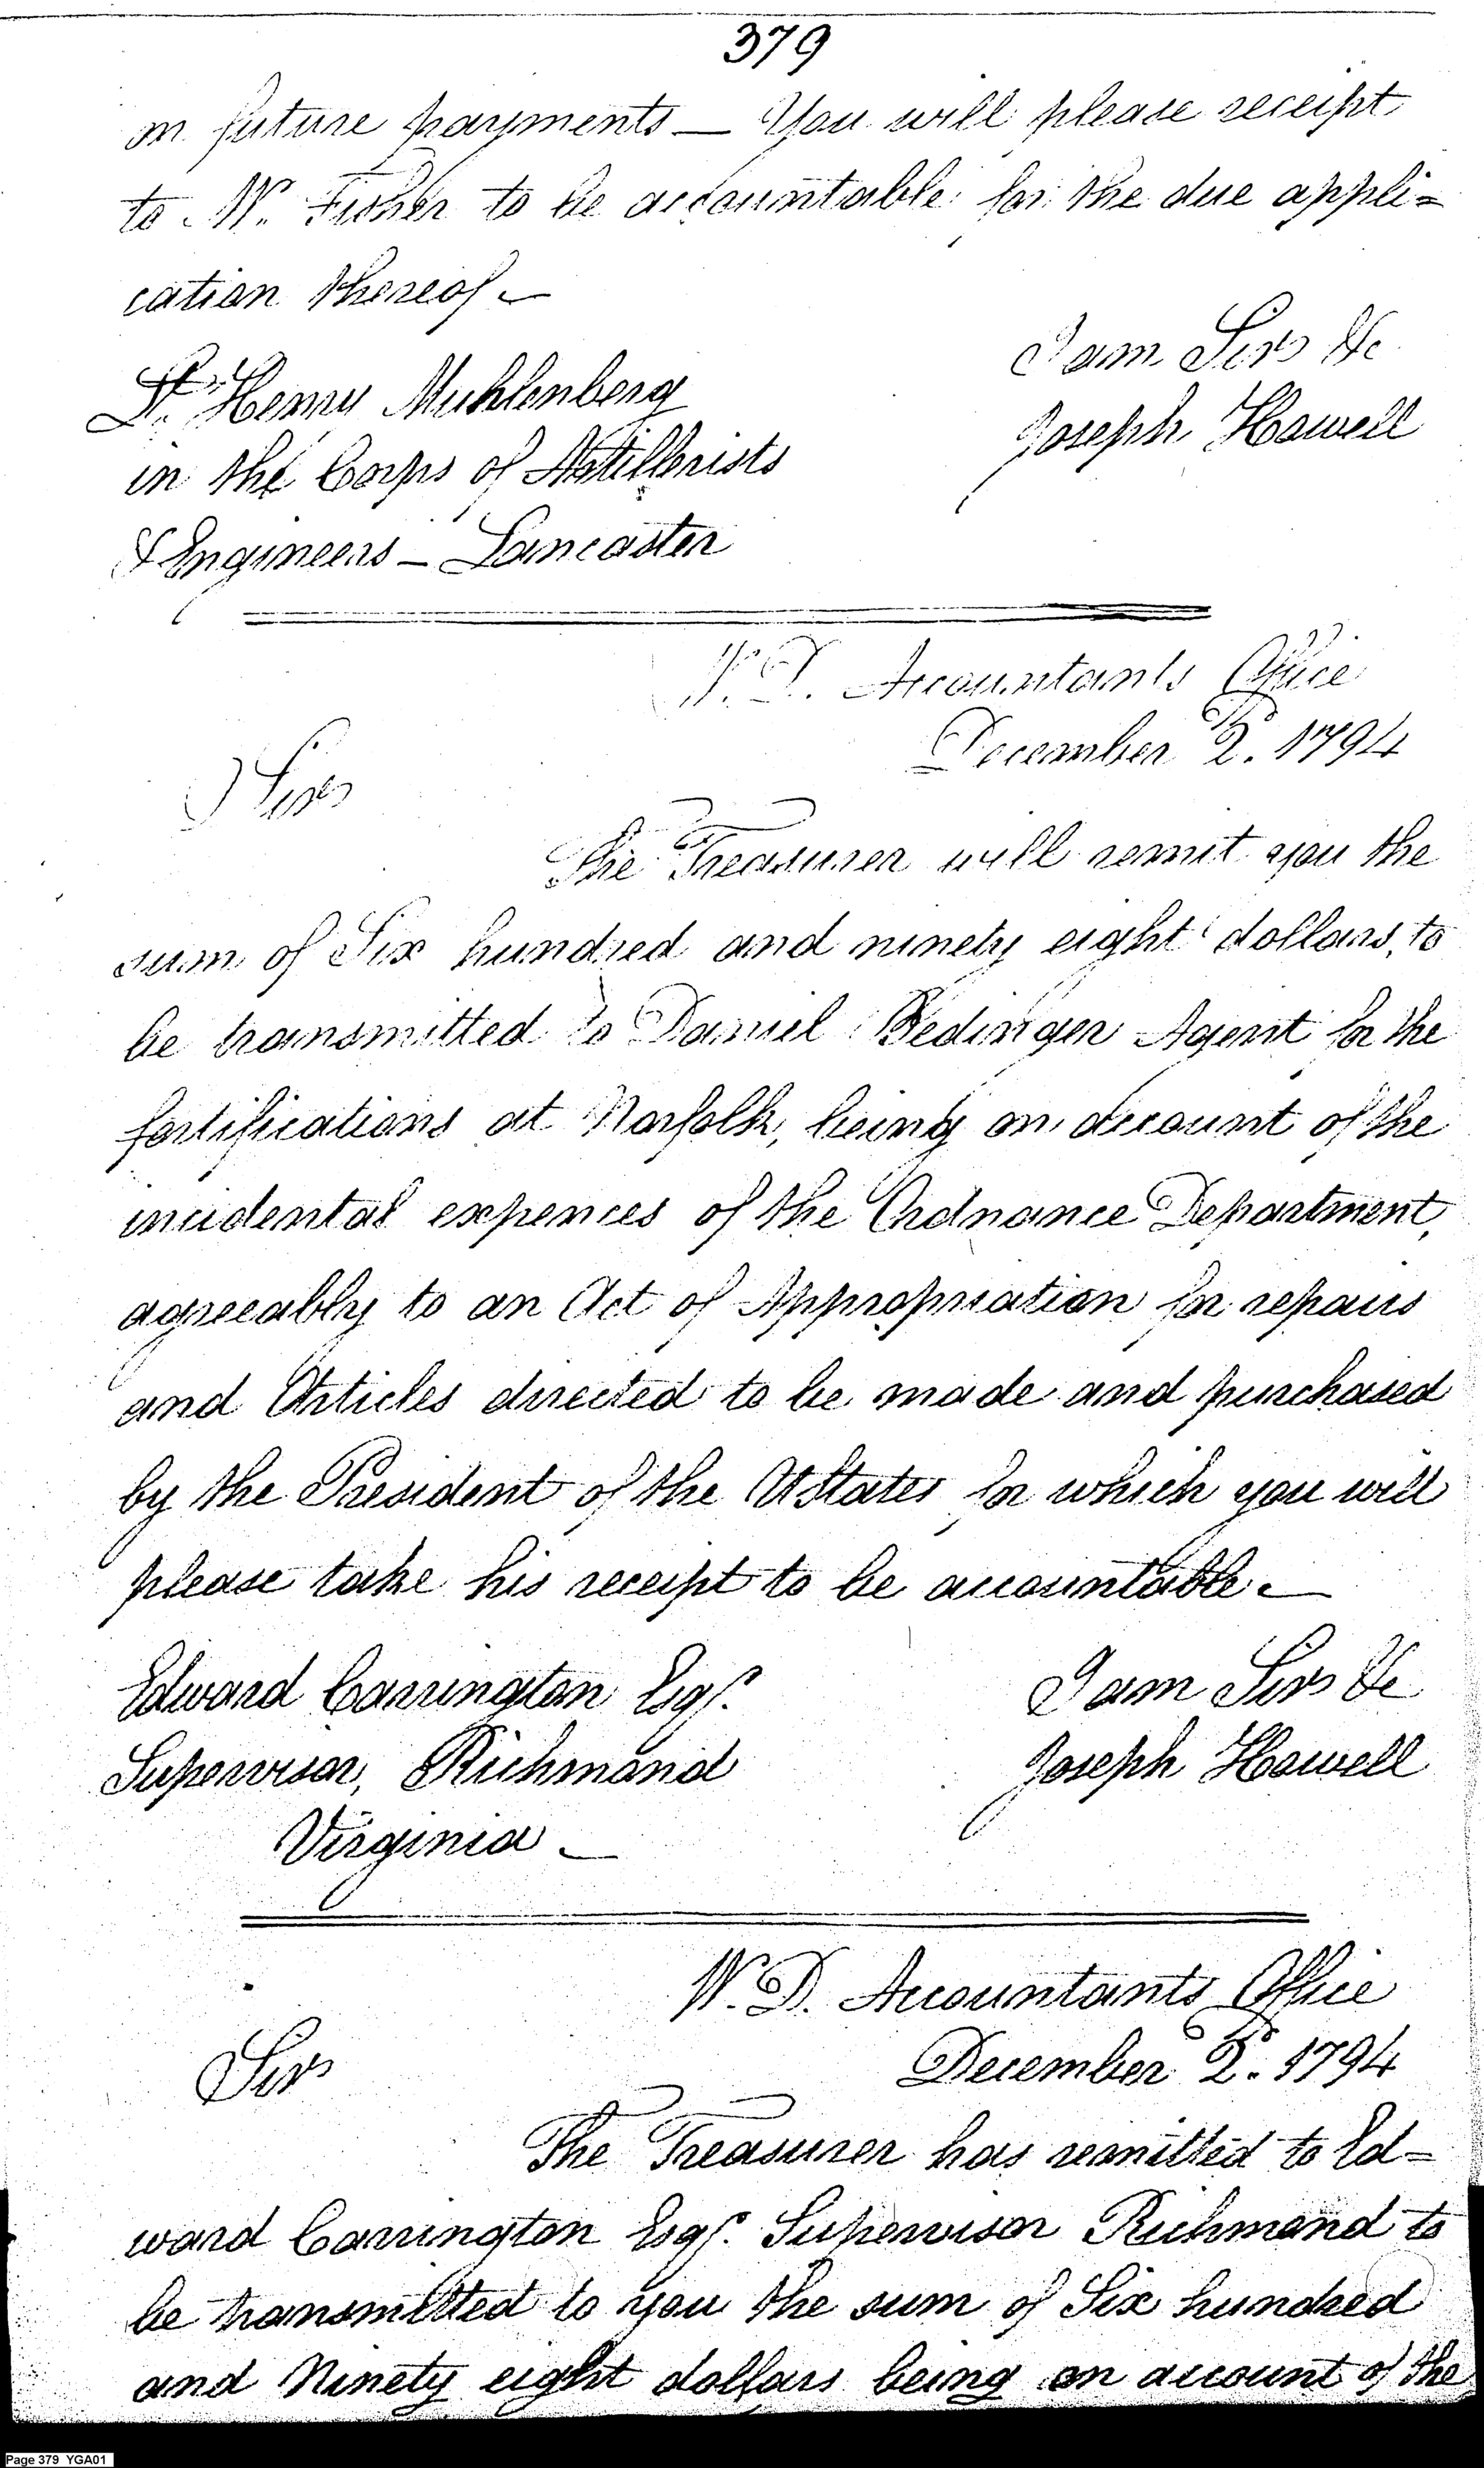 379
on future payments — You will please receipt
to Mr. Fisher to be accountable for the due appli=
cation thereof —
I am Sir &c
Lt. Henry Muhlenberg
Joseph Howell
in the Corps of Artillerists
& Engineers — Lancaster
W. D. Accountants Office
December 2d. 1794
Sir
The Treasurer will remit you the
sum of Six hundred and ninety eight dollars, to
be transmitted to Daniel Bedinger Agent for the
fortifications at Norfolk, being on account of the
incidental expences of the Ordnance Department,
agreeably to an Act of Appropriation for repairs
and Articles directed to be made and purchased
by the President of the UStates for which you will
please take his receipt to be accountable —
Edward Carrington Esqr.
I am Sir &c
Supervisor, Richmond
Joseph Howell
Virginia —
W. D. Accountants Office
December 2d. 1794
Sir
The Treasurer has remitted to Ed=
ward Carrington Esqr. Supervisor Richmond to
be transmitted to you the sum of Six hundred
and Ninety eight dollars being on account of the
Page 379 YGA01